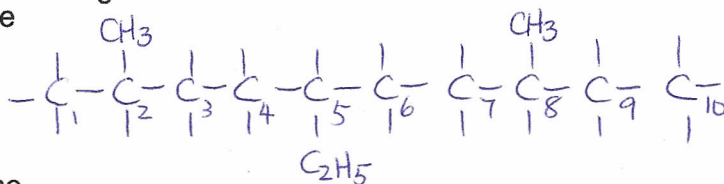 e
CH3 CH3
-C1-C2-C3-C4-C5-C6-C7-C8-C9-C10
C2H5